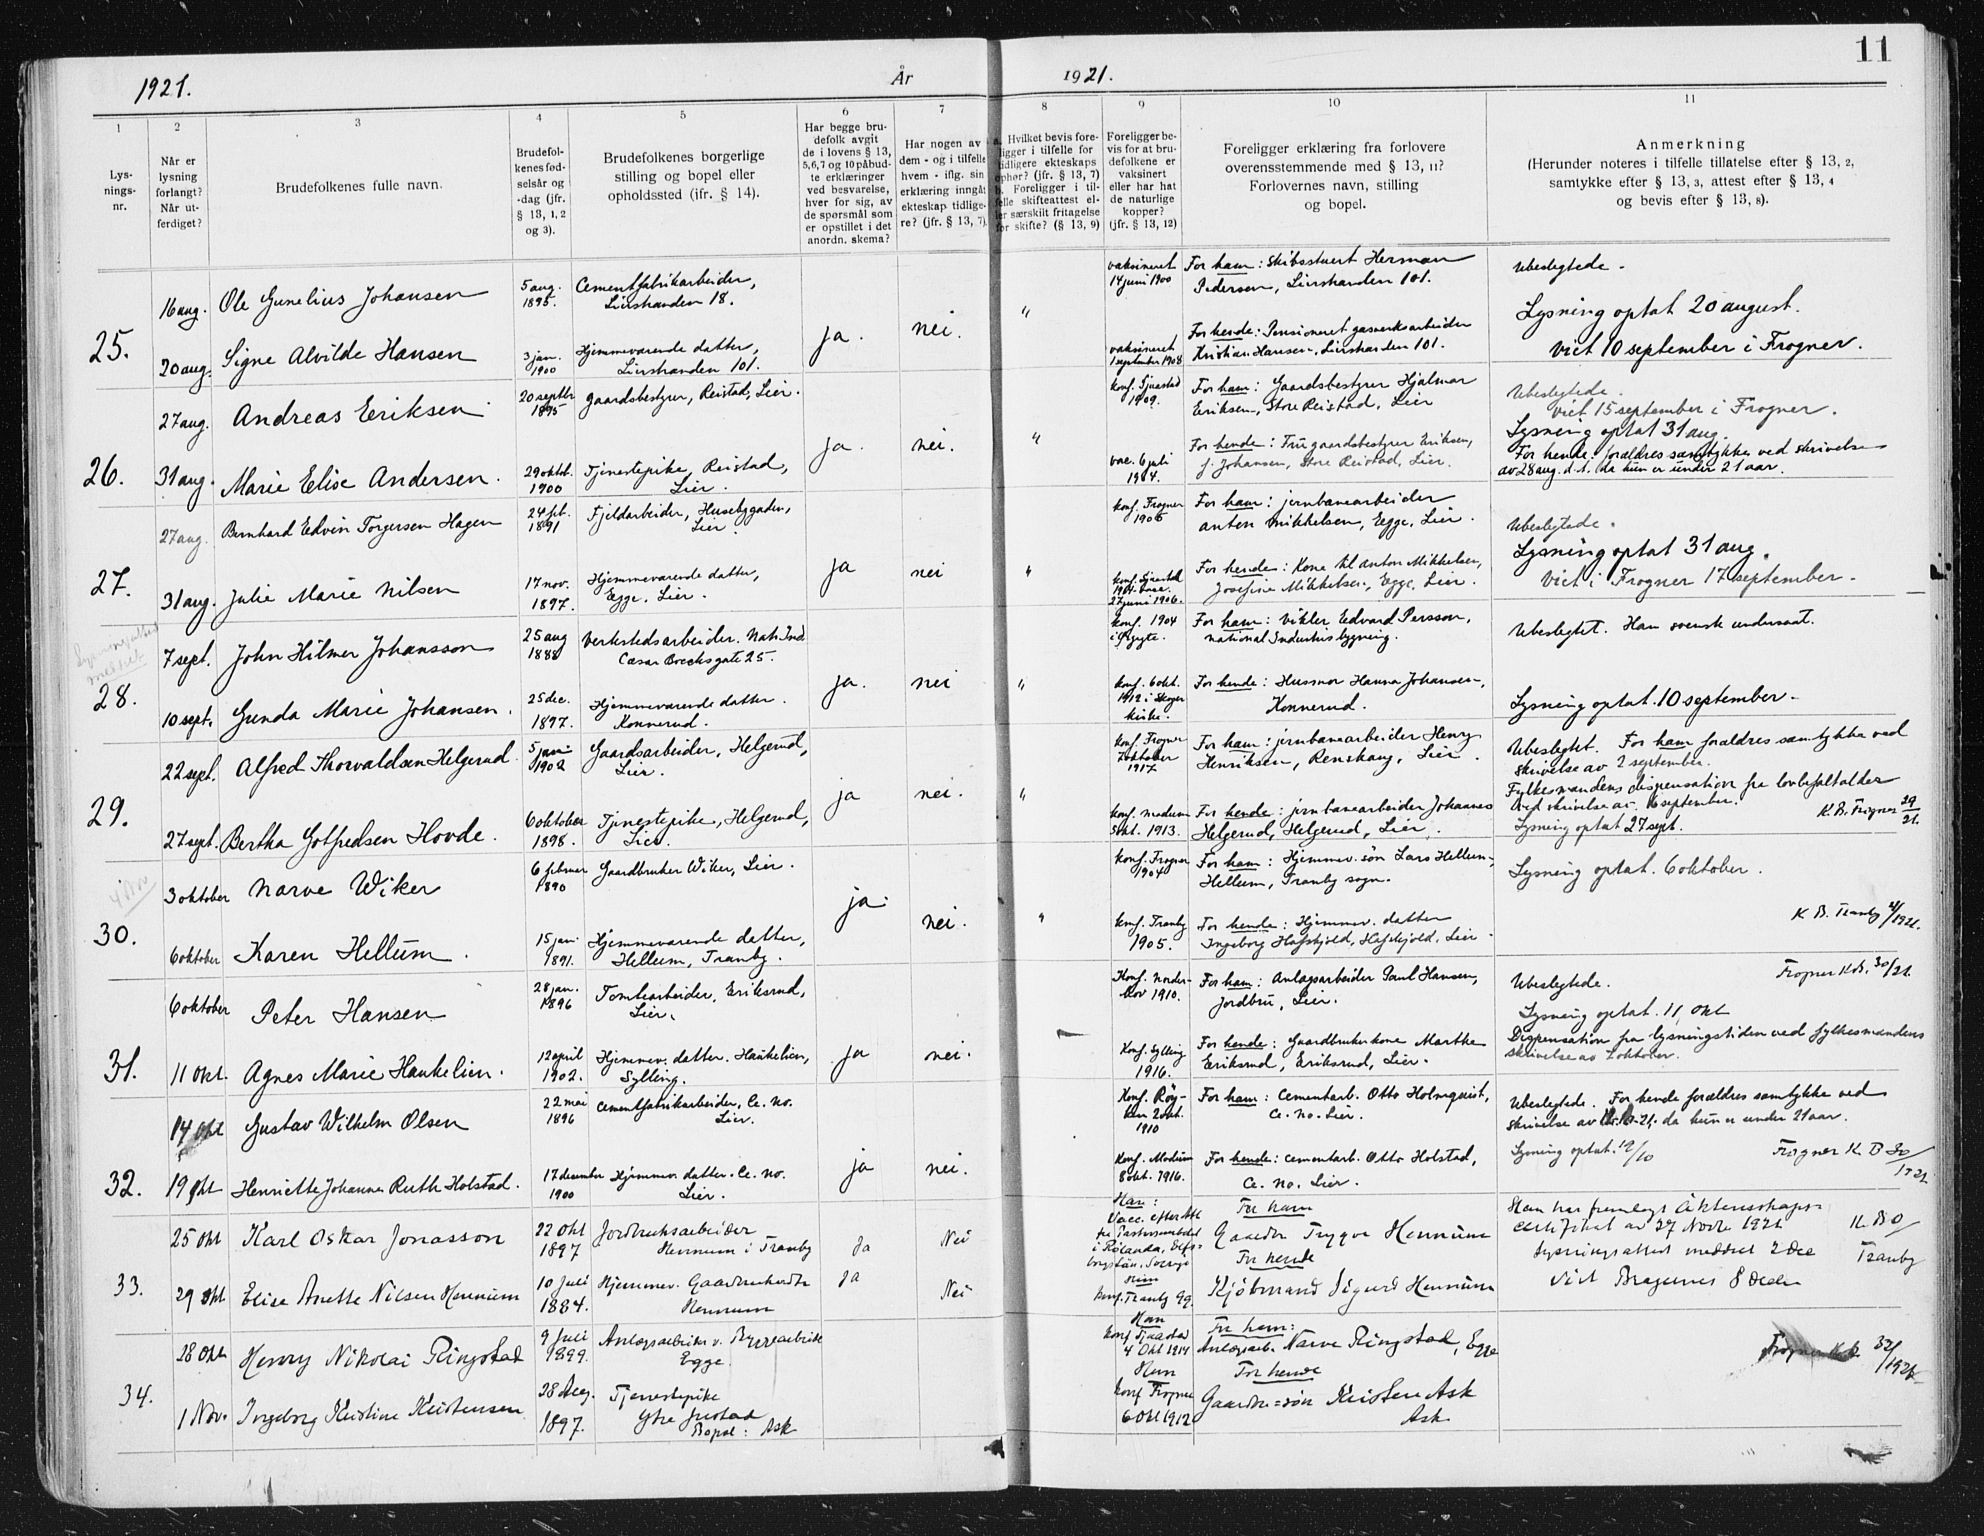 11
1921.
År
1921.
1
2
3
4
5
6
7
8
9
10
11
Lys-
nings-
nr.
Når er
lysning
forlangt?
Når ut-
ferdiget?
Brudefolkenes fulle navn.
Brudefol-
kenes fød-
selsår og
-dag (jfr.
§ 13, 1, 2
og 3).
Brudefolkenes borgerlige
stilling og bopel eller
opholdssted (jfr. § 14).
Har begge bru-
defolk avgit
de i lovens § 13,
5,6,7 og 10 påbud-
te erklæringer
ved besvarelse,
hver for sig, av
de spørsmål som
er opstillet i det
anordn. skema?
Har nogen av
dem - og i tilfelle
hvem - iflg. sin
erklæring inngåt
ekteskap tidlige-
re? (jfr. § 13, 7).
a. Hvilket bevis fore-
ligger i tilfelle for
tidligere ekteskaps
ophør? (jfr. § 13, 7)
b. Foreligger i til-
felle skifteattest el-
ler særskilt fritagelse
for skifte? (§ 13, 9)
Foreligger be-
vis for at bru-
defolkene er
vaksinert
eller har hat
de naturlige
kopper?
(jfr. § 13, 12)
Foreligger erklæring fra forlovere
overensstemmende med § 13, 11?
Forlovernes navn, stilling
og bopel.
Anmerkning
(Herunder noteres i tilfelle tillatelse efter § 13, 2,
samtykke efter § 13, 3, attest efter § 13, 4
og bevis efter § 13, 8).
25.
16 aug.
Ole Gunelius Johansen
5 aug.
1895.
Cementfabrikarbeider,
Lierstranden 18.
20 aug.
Signe Alvilde Hansen
3 jan.
1900
Hjemmeværende datter,
Lierstranden 101.
ja.
nei.
"
vaksineret
14 juni 1900
vaksineret
1 september 1908
For ham: Skibsstuert Herman
Pedersen, Lierstranden 101.
For hende: Pensioneret gasverksarbeider
Kristian Hansen, Lierstranden 101.
Ubeslegtede.
Lysning optat 20 august.
Viet 10 september i Frogner.
26.
27 aug.
Andreas Eriksen
20 septbr
1895
gaardsbestyrer, Reistad, Lier.
31 aug.
Marie Elise Andersen.
29 oktb.
1900
Tjenestepike, Reistad,
Lier.
ja.
nei.
"
konf. Tjuastad
1909.
vac. 6 juli
1904.
For ham: Gaardsbestyrer Hjalmar
Eriksen, Store Reistad, Lier
For hende: Fru gaardsbestyrer Eriksen,
f. Johansen, Store Reistad, Lier.
Ubeslegtede.
viet 15 september i Frogner.
Lysning optat 31 aug.
For hende: forældres samtykke ved skrivelse
av 28 aug. d. å. da hun er under 21 aar.
27.
27 aug.
Bernhard Edvin Torgersen Hagen
24 
1891
Fjeldarbeider, Husebygaden,
Lier.
31 aug.
Julie Marie Nilsen
17 nov.
1897.
Hjemmeværende datter,
Egge, Lier.
ja
nei
"
konf. Frogner
1905
27 juni 1906.
For ham: jernbanearbeider
Anton Mikkelsen, Egge, Lier.
For hende: Kone til Anton Mikkelsen,
Josefine Mikkelsen, Egge, Lier.
Ubeslegtede.
Lysning optat 31 aug.
Viet i Frogner 17 september.
Lysningsattest
meddelt
28.
7 sept.
John Hilmer Johansson
25 aug
1888
Verkstedsarbeider. Nat. Ind
Cæsar Boecksgate 25.
10 sept.
Gunda Marie Johansen.
25 dec.
1897.
Hjemmeværende datter.
Konnerud.
ja.
nei
"
konf. 1904
konf. 6 okt.
1912 i Skoger
kirke.
For ham: vikler Edvard Persson,
national Industris bygning.
For hende: Husmor Hanna Johansen,
Konnerud.
Ubeslegtet. Han svensk undersaat.
Lysning optat. 10 september.
29.
22 sept.
Alfred Thorvaldsen Helgerud.
5 jan.
1902
Gaardsarbeider, Helgerud,
Lier.
27 sept.
Bertha Gotfredsen Hovde.
6 oktober
1898.
Tjenestepike, Helgerud,
Lier.
ja
nei.
"
konf. Frogner
7 oktober
1917
konf. Modum
5 okt. 1913.
For ham: jernbanearbeider Henry
Henriksen, Renskaug, Lier.
For hende: jernbanearbeider Johannes
Helgerud, Helgerud, Lier.
Ubeslegtet. For ham forældres samtykke ved
skrivelse av 2 september.
Fylkesmandens dispensation fra lovbefalt alder
ved skrivelse av 16 september.
Lysning optat 27 sept.
K. B. Frogner 29/21.
30.
3 oktober
Narve Wiker
6 februar
1890
Gaardbruker Wiker, Lier.
6 oktober
Karen Hellum.
15 jan.
1891.
Hjemmeværende datter,
Hellum, Tranby.
ja.
nei.
"
konf. Frogner
1904
konf. Tranby
1905.
For ham: Hjemmev. søn Lars Hellum,
Hellum, Tranby sogn.
For hende: Hjemmev. datter
Ingeborg Hafskjold, Hafskjold, Lier.
Lysning optat. 6 oktober.
K. B. Tranby 4/1921.
31.
6 oktober
Peter Hansen
28 jan.
1896
Tomtearbeider, Eriksrud,
Lier.
11 okt.
Agnes Marie Haukelien.
12 april
1902.
Hjemmev. datter. Haukelien,
Sylling.
ja
nei.
Konf. Norder-
hov 1910.
Konf. Sylling
1916.
For ham: Anlægsarbeider Paul Hansen,
Jordbru, Lier.
For hende: Gaardbrukerkone Marthe
Eriksrud, Eriksrud, Lier.
Frogner K.B. 30/21.
Ubeslegtede.
Lysning optat. 11 okt
Dispensation fra lysningstiden ved fylkesmandens
skrivelse av 1 oktober.
32.
14 okt
Gustav Wilhelm Olsen
22 mai
1896
Cementfabrikarbeider, Ce. no.
Lier.
19 okt
Henriette Johanne Ruth Holstad.
17 december
1900
Hjemmev. datter. Ce. no.
Lier.
ja
nei.
Konf. Røy-
ken 2 okt.
1910
Konf. Modum
8 okt. 1916.
For ham: Cementarb. Otto Holmqvist,
Ce. no. Lier.
For hende: cementarb. Otto Holstad,
Ce. no. Lier.
Ubeslegtede. For hende forældres samtykke ved
skrivelse av 10-21. da hun er under 21 aar.
Lysning optat. 19/10
Frogner K. B 30/1921
33.
25 okt
Karl Oskar Jonasson
22 okt
1897
Jordbruksarbeider
Hennum i Tranby
29 okt
Elise Anette Nilsen Hennum
10 juli
1884.
Hjemmev. Gaardbrukerdtr
Hennum
Ja
Ja
Nei
Nei
Han:
Vacc. efter Att
Sverige
Hun
konf. Tranby 99.
For ham
Gaardbr Trygve Hennum
For hende
Kjøbmand Sigurd Hennum
Han har fremlagt Äktenskaps-
certifikat av 27 Novbr 1921
Lysningsattest meddelt 2 Dec
Viet Bragernes 8 Decbr
K. B 0/
Tranby
34.
28 okt
Henry Nikolai Ringstad
9 Juli
1899.
Anlægsarbeider v. Byggearbeide
Egge
1 Nov.
Ingeborg Kristine Kristensen
28 Aug.
1897.
Tjenestepike
Ytre Justad
Bopæl: Ask
Han
konf Tjuastad
4 Okt 1914
Hun
konf Frogner
6 Okt 1912
For ham:
Anlægsarb. Narve Ringstad, Egge
For hende
Gaardbr=søn Kristen Ask
Ask
Frogner K.B. 32/1921